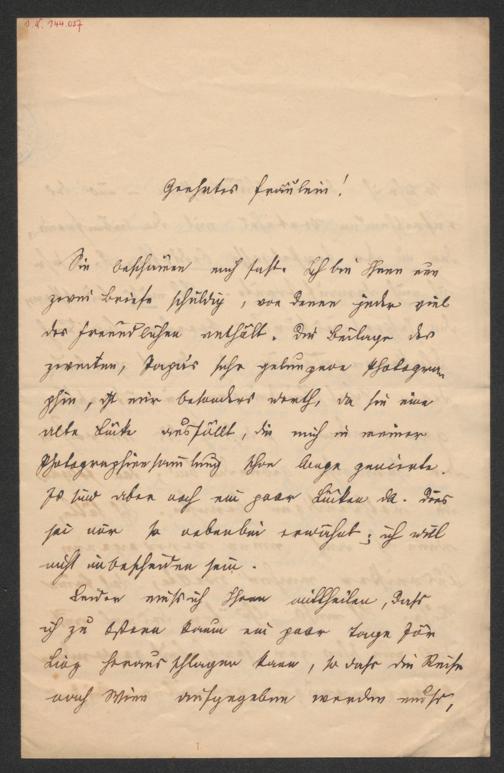 I.N. 144.057
Geehrtes Fräulein!
Sie beschämen mich fast. Ich bin Ihnen nun
zwei Briefe schuldig, von denen jeder viel
des Freundlichen enthält. Die Beilage des
zweiten, Papa's sehr gelungene Photogra-
phie, ist mir besonders werth, da sie eine
alte Lücke ausfüllt, die mich in meiner
Photographiensammlung schon lange genierte.
Es sind aber noch ein paar Lücken da. Dies
sei nur so nebenbei erwähnt; ich will
nicht unbescheiden sein.
Leider muss ich Ihnen mittheilen, dass
ich zu Ostern kaum ein paar Tage für
heraus schlagen kann, so dass die Reise
nach Wien aufgegeben werden muss,